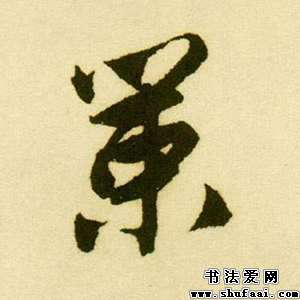 策
书法爱网
www.shufaai.com